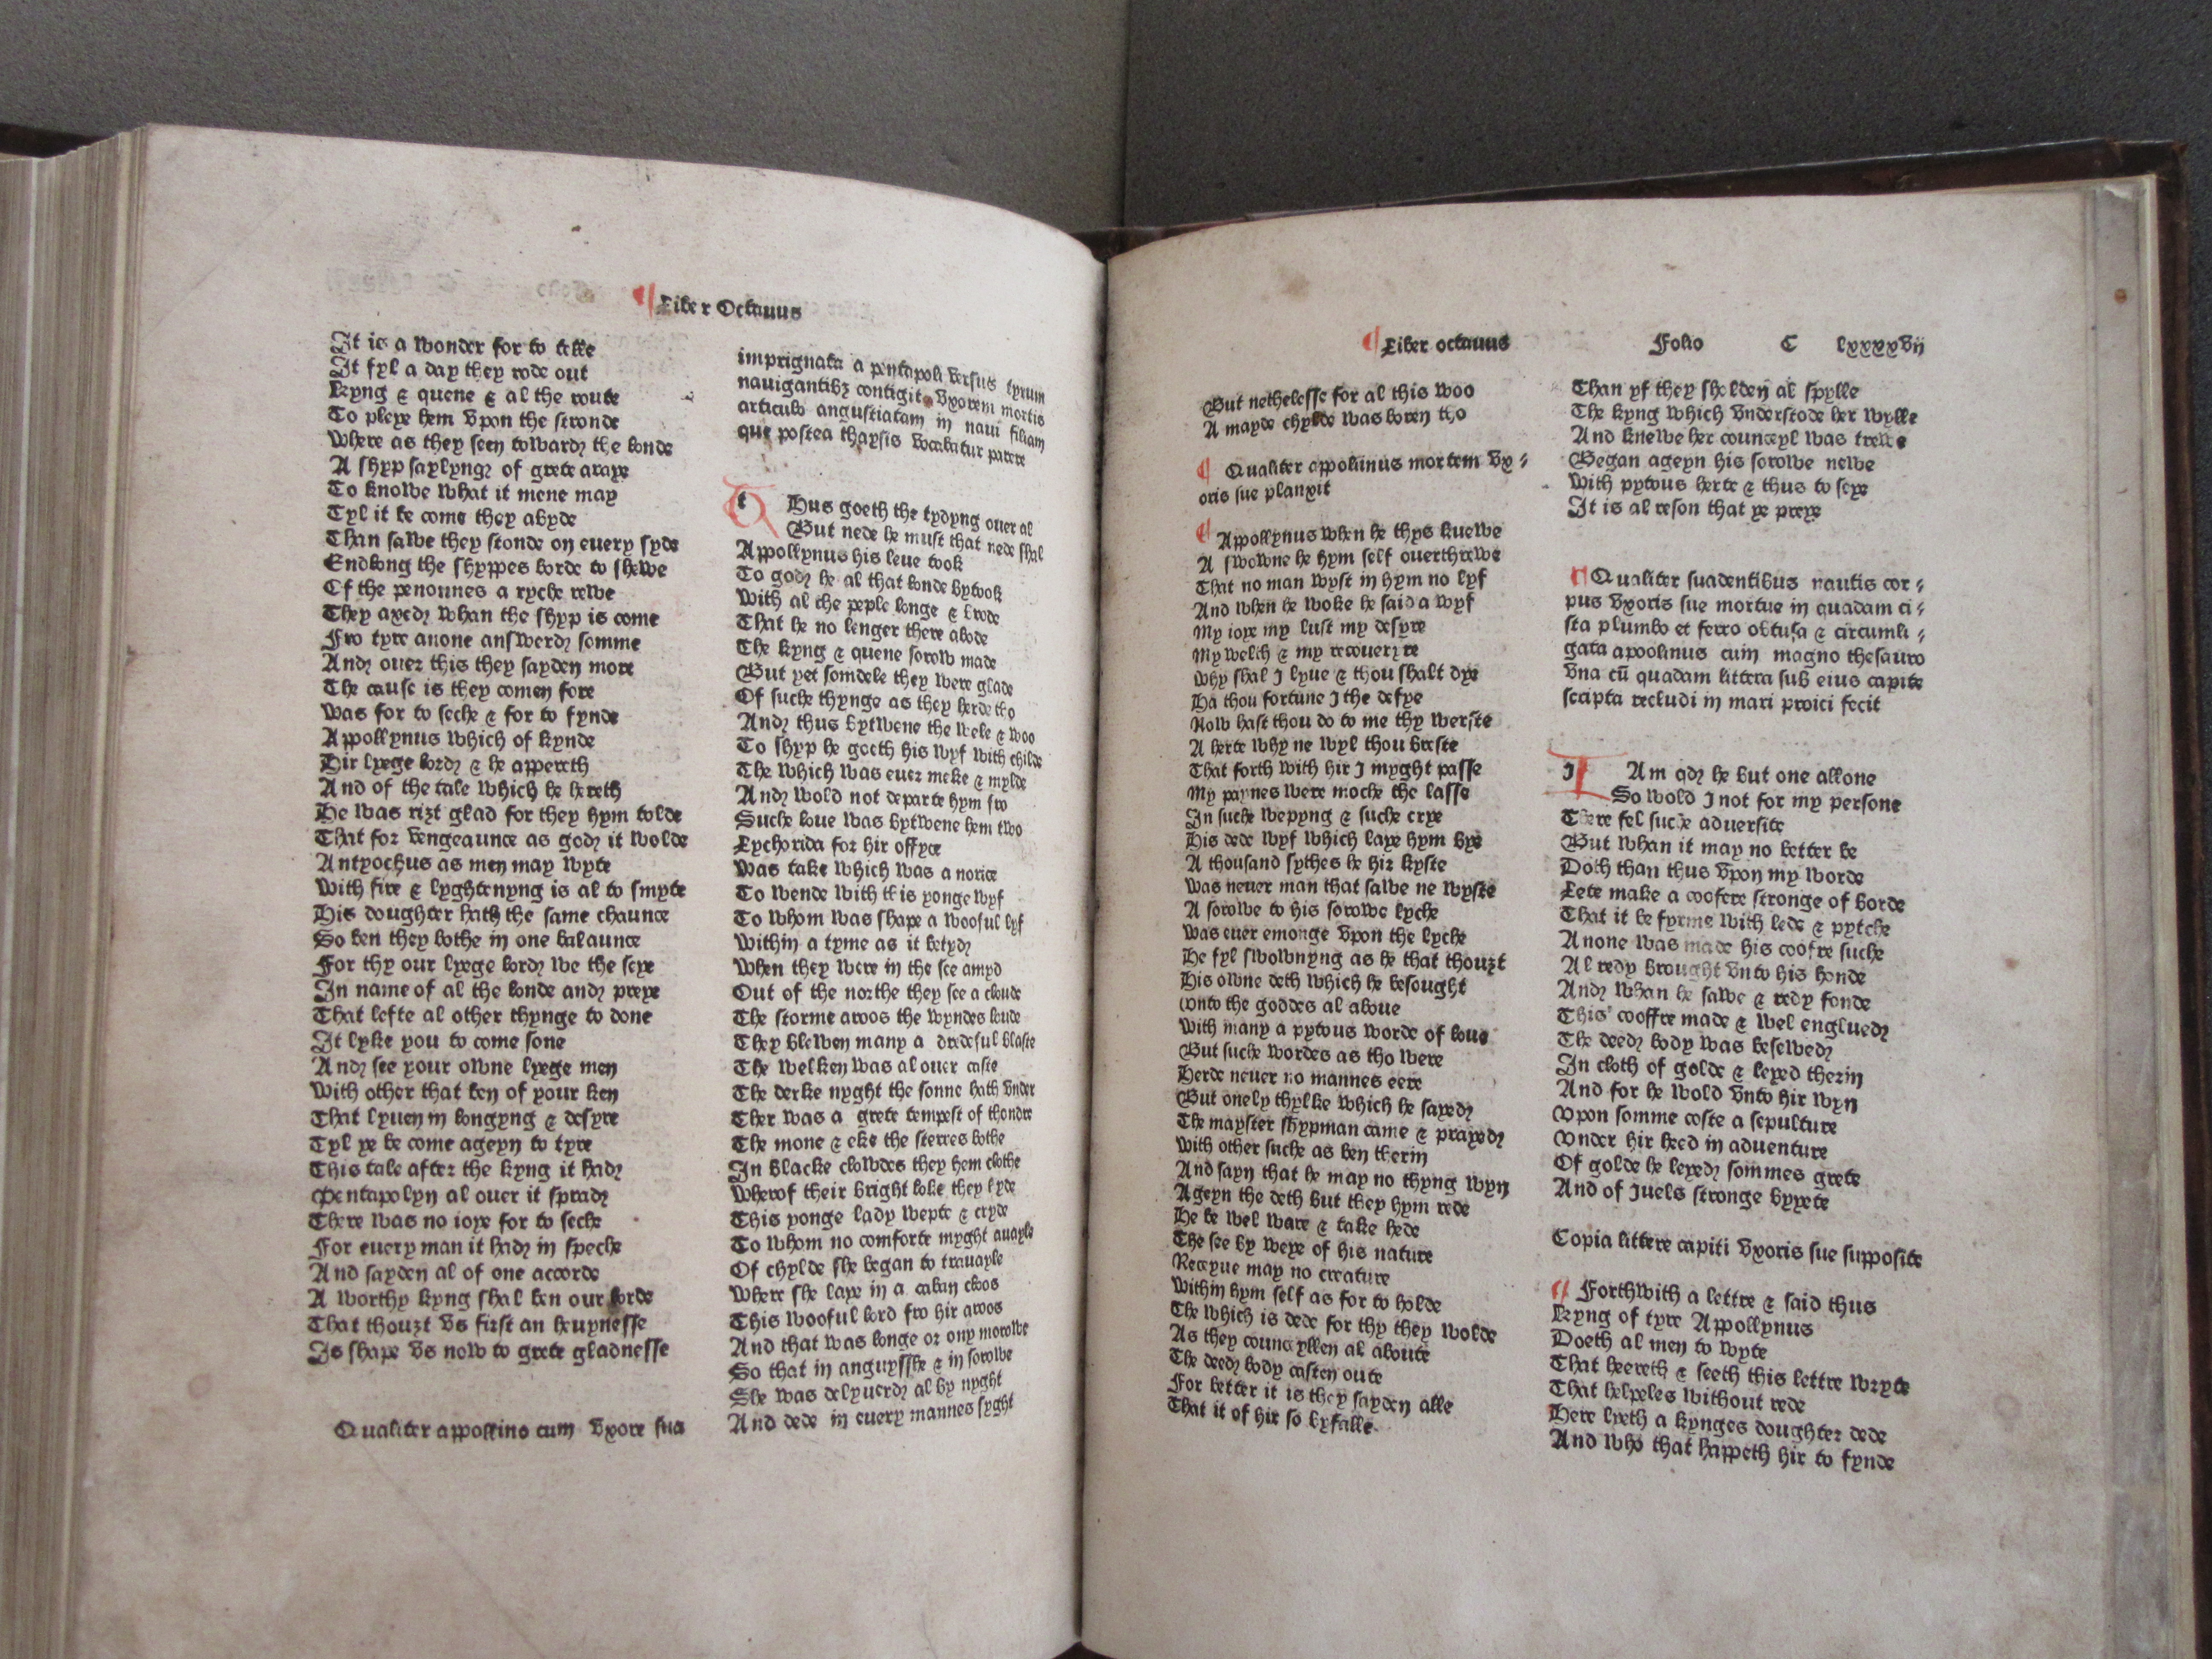 ¶ Liber Octauus
It is a wonder for to telle
It fyl a day they rode out
Kyng & quene & al the route
To pleye hem vpon the stronde
Where as they seen towardȝ the londe
A shyp saylyngȝ of grete araye
To knowe what it mene may
Tyl it be come they abyde
Than sawe they stonde on euery syde
Endlong the shyppes borde to shewe
Of the penonnes a ryche rewe
They axedȝ whan the shyp is come
Fro tyre anone answerdȝ somme
Andȝ ouer this they sayden more
The cause is they comen fore
Was for to seche & for to fynde
Appollynus which of kynde
Hir lyege lordȝ & he appereth
And of the tale which he hereth
He was riȝt glad for they hym tolde
That for vengeaunce as godȝ it wolde
Antyochus as men may wyte
With fire & lyghtenyng is al to smyte
His doughter hath the same chaunce
So ben they bothe in one balaunce
For thy our lyege lordȝ we the seye
In name of al the londe andȝ preye
That lefte al other thynge to done
It lyke you to come sone
Andȝ see your owne lyege men
With other that ben of your ken
That lyuen in longyng & desyre
Tyl ye be come ageyn to tyre
This tale after the kyng it hadȝ
Pentapolyn al ouer it spradȝ
There was no ioye for to seche
For euery man it hadȝ in speche
And sayden al of one accorde
A worthy kyng shal ben our lorde
That thouȝt vs first an heuynesse
Is shape vs now to grete gladnesse
Qualiter appollino cum vxore sua
imprignata a pentapoli versus tyrum
nauigantibȝ contigit vxorem mortis
articulo angustiatam in naui filiam
que postea thaysis vocabatur parere
t Hus goeth the tydyng ouer al
But nede he must that nede shal
Appollynus his leue took
To godȝ he al that londe bytook
With al the peple longe & brode
That he no lenger there abode
The kyng & quene sorow made
But yet somdele they were glade
Of suche thynge as they herde tho
Andȝ thus bytwene the wele & woo
To shyp he goeth his wyf with childe
The which was euer meke & mylde
Andȝ wold not departe hym fro
Suche loue was bytwene hem two
Lychorida for hir offyce
Was take which was a norice
To wende with this yonge wyf
To whom was shape a wooful lyf
Within a tyme as it betydȝ
When they were in the see amyd
Out of the northe they see a cloude
The storme aroos the wyndes loude
They blewen many a dredeful blaste
The welken was al ouer caste
The derke nyght the sonne hath vnder
Ther was a grete tempest of thondre
The mone & eke the sterres bothe
In blacke clowdes they hem clothe
Wherof their bright loke they hyde
This yonge lady wepte & cryde
To whom no comforte myght auayle
Of chylde she began to trauayle
Where she laye in a caban cloos
This wooful lord fro hir aroos
And that was longe or ony morowe
So that in anguysshe & in sorowe
She was delyuerdȝ al by nyght
And dede in euery mannes syght
¶ Liber octauus Folio C lxxxxvij
But nethelesse for al this woo
A mayde chylde was boren tho
¶ Qualiter appolinus mortem vx⸗
oris sue planxit
¶ Appollynus when he thys knewe
A swowne he hym self ouerthrewe
That no man wyst in hym no lyf
And when he woke he said a wyf
My ioye my lust my desyre
My welth & my recoueryre
Why shal I lyue & thou shalt dye
Ha thou fortune I the defye
Now hast thou do to me thy werste
A herte why ne wyl thou breste
That forth with hir I myght passe
My paynes were moche the lasse
In suche wepyng & suche crye
His dede wyf which laye hym bye
A thousand sythes he hir kyste
Was neuer man that sawe ne wyste
A sorowe to his sorowe lyche
Was euer emonge vpon the lyche
He fyl swownyng as he that thouȝt
His owne deth which he besought
Vnto the goddes al aboue
With many a pytous worde of loue
But suche wordes as tho were
Herde neuer no mannes eere
But onely thylke which he saydȝ
The mayster shypman came & prayedȝ
With other suche as ben therin
And sayn that he may no thyng wyn
Ageyn the deth but they hym rede
He be wel ware & take hede
The see by weye of his nature
Receyue may no creature
Within hym self as for to holde
The which is dede for thy they wolde
As they counceyllen al aboute
The deedȝ body casten oute
For better it is they sayden alle
That it of hir so byfalle
Than yf they sholden al spylle
The kyng which vnderstode her wylle
And knewe her counceyl was trewe
Began ageyn his sorowe newe
With pytous herte & thus to seye
It is al reson that ye preye
¶ Qualiter suadentibus nautis cor⸗
pus vxoris sue mortue in quadam ci⸗
sta plumbo et ferro obtusa & circumli⸗
gata apolinus cum magno thesauro
vna cū quadam littera sub eius capite
scripta recludi in mari proici fecit
I Am qdȝ he but one allone
So wold I not for my persone
There fel suche aduersite
But whan it may no better be
Doth than thus vpon my worde
Lete make a coofere stronge of borde
That it be fyrme with lede & pytche
Anone was made his coofre suche
Al redy brought vnto his honde
Andȝ whan he sawe & redy fonde
This cooffre made & wel engluedȝ
The deedȝ body was besewedȝ
In cloth of golde & leyed therin
And for he wold vnto hir wyn
Vpon somme coste a sepulture
Vnder hir heed in aduenture
Of golde he leyedȝ sommes grete
And of Juels stronge byyete
Copia littere capiti vxoris sue supposite
¶ Forthwith a lettre & said thus
Kyng of tyre Appollynus
Doeth al men to wyte
That heereth & seeth this lettre wryte
That helpeles without rede
Here lyeth a kynges doughter dede
And who that happeth hir to fynde